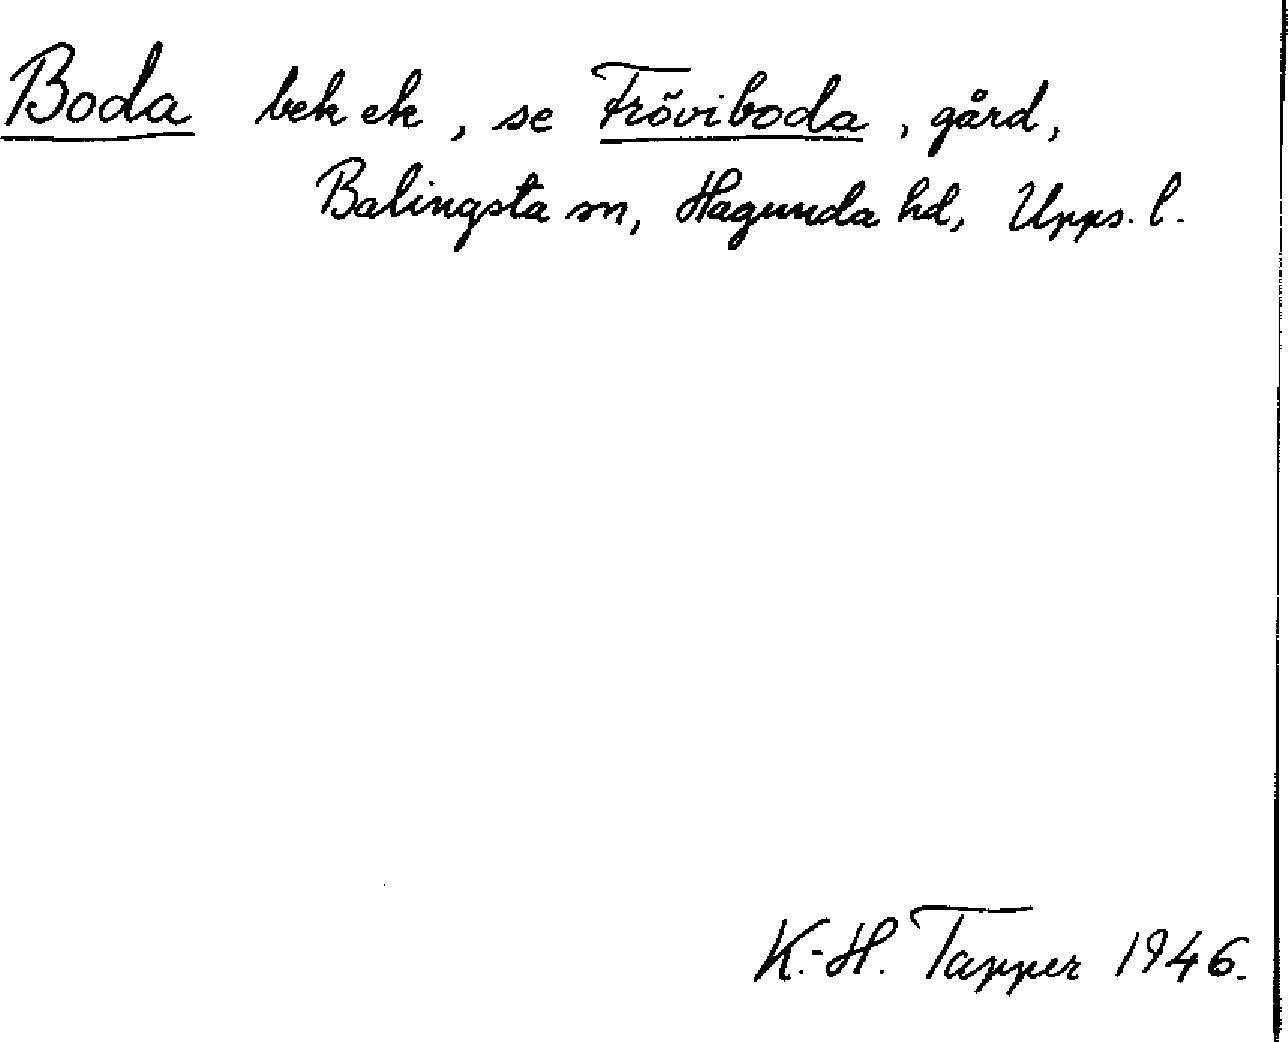 Boda bek ek, se Fröviboda, gård,
Balingsta sn, Hagunda hd, Upps. l.
K.-H. Tapper 1946.